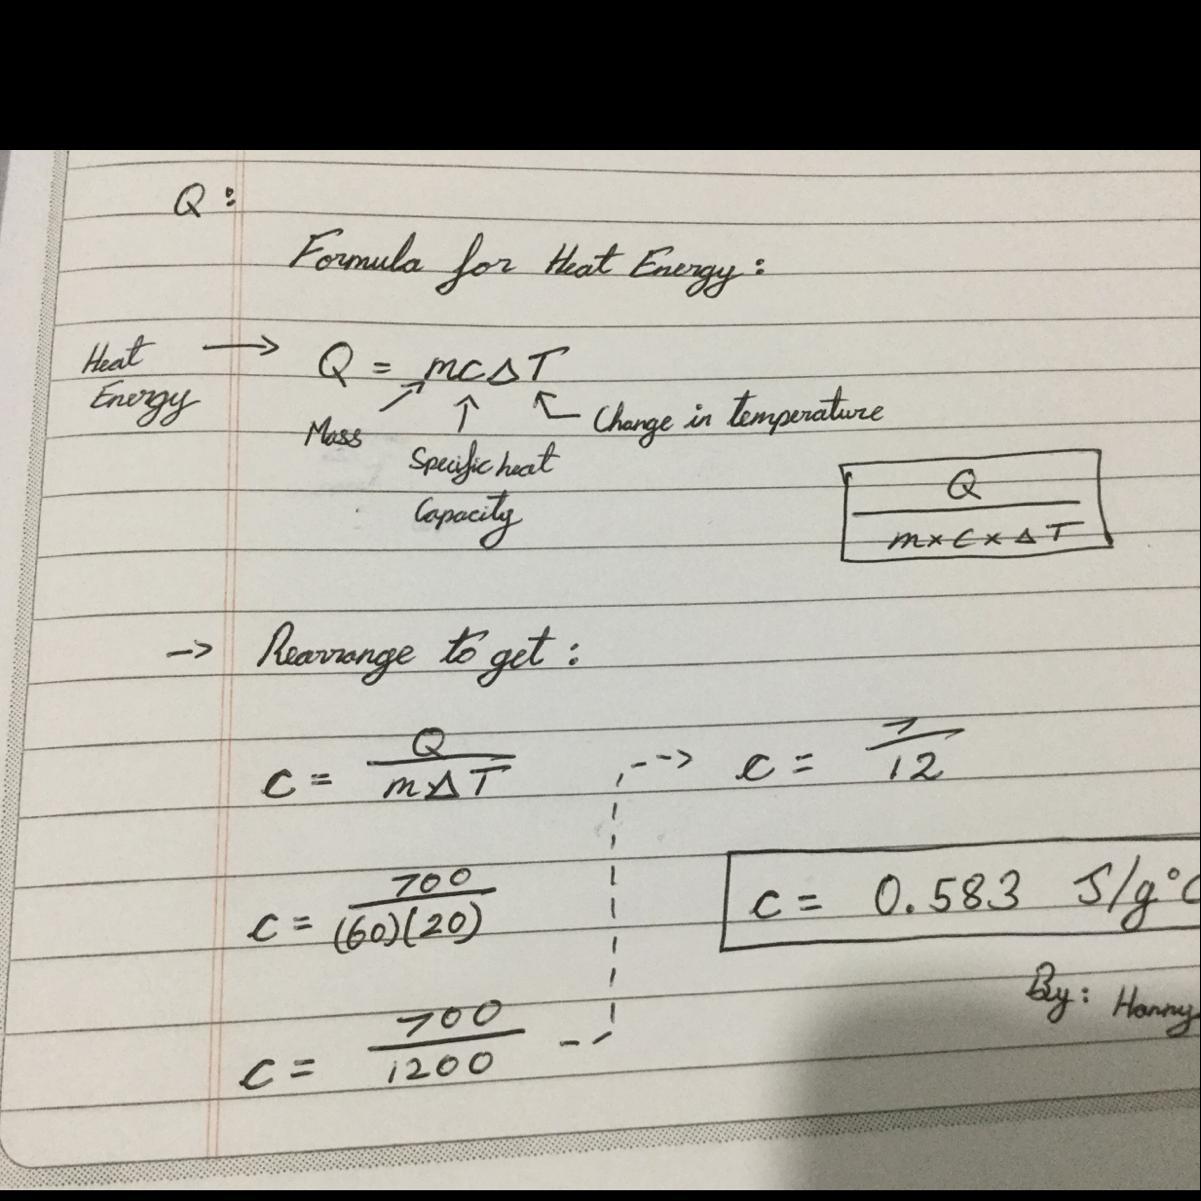 Q:
Formula for Heat Energy:
Heat Energy → Q = mcΔT
Mass
Specific heat Capacity
Change in temperature
Q
m×c×ΔT
-> Rearrange to get:
c = Q / mΔT
c = 700 / (60)(20)
c = 700 / 1200
--> c = 7 / 12
c = 0.583 J/g°C
By: Hanny